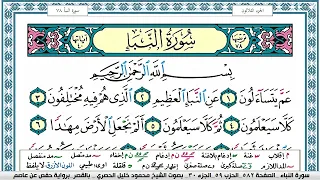 سورة النبأ ٧٨
الجزء الثلاثون
سُورَةُ النَّبَإِ
بِسْمِ اللَّهِ الرَّحْمَٰنِ الرَّحِيمِ
عَمَّ يَتَسَآءَلُونَ ١ عَنِ النَّبَإِ الْعَظِيمِ ٢ الَّذِى هُمْ فِيهِ مُخْتَلِفُونَ ٣
كَلَّا سَيَعْلَمُونَ ٤ ثُمَّ كَلَّا سَيَعْلَمُونَ ٥ أَلَمْ نَجْعَلِ الْأَرْضَ مِهَٰدًا ٦
سورة النبإ، الصفحة ٥٨٢ الجزء ٣٠ الحزب ٥٩، بصوت الشيخ محمود خليل الحصري، بالقصر، برواية حفص عن عاصم